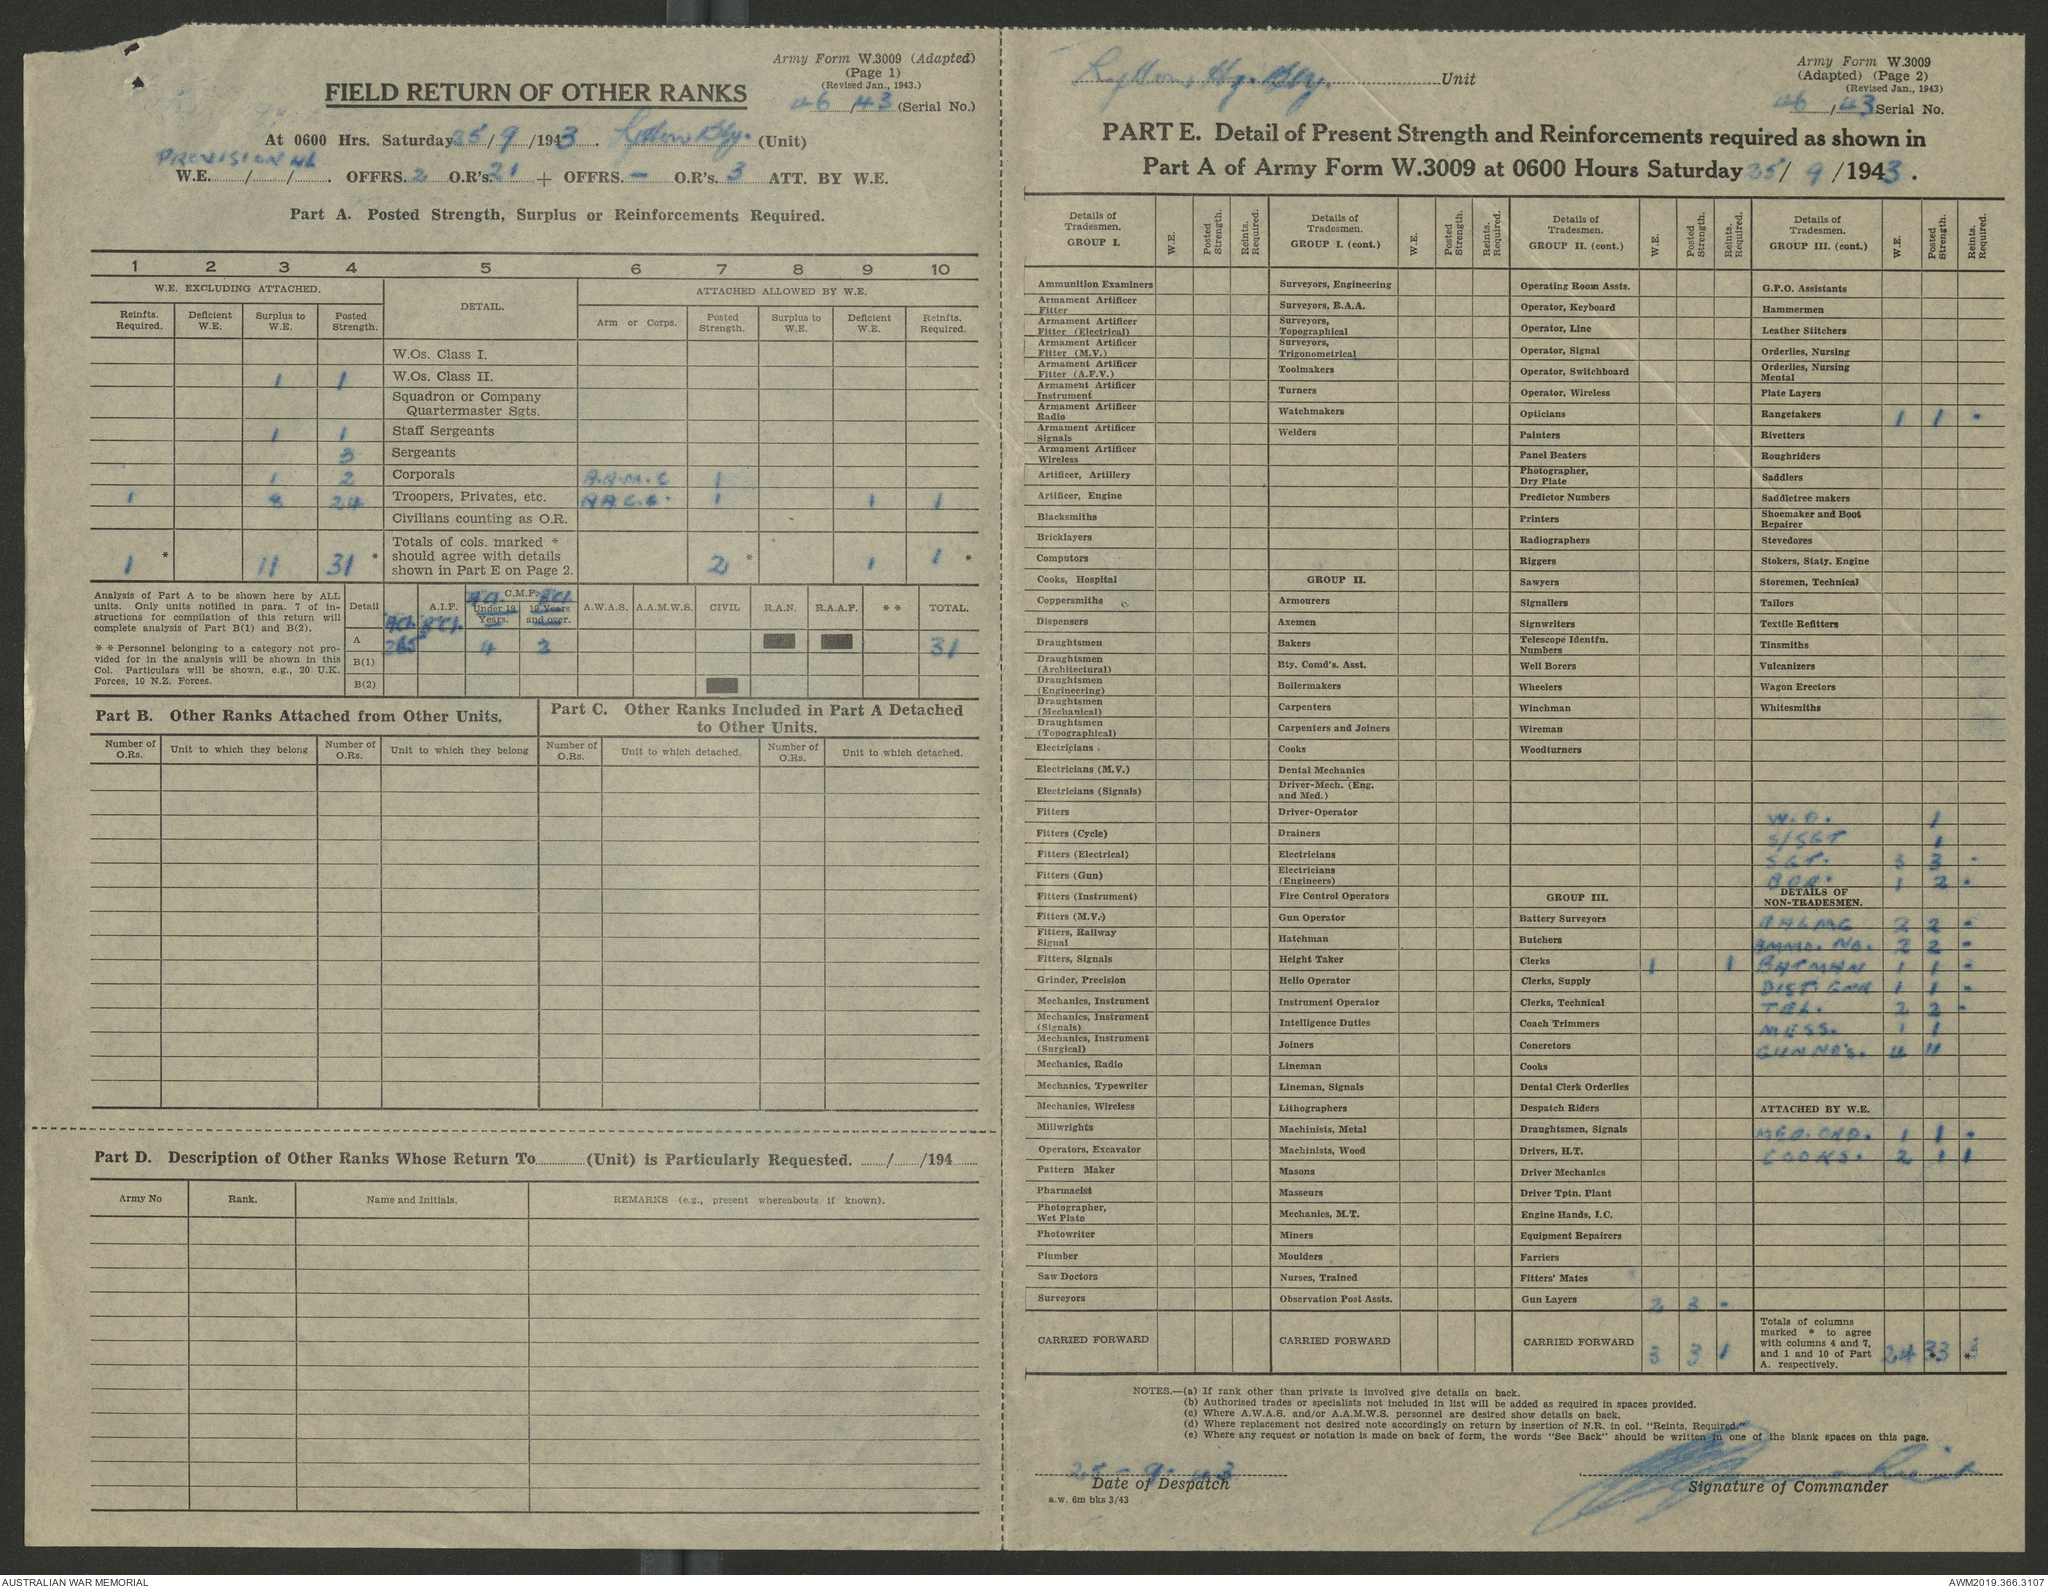 Army Form W.3009 (Adapted)
(Page 1)
(Revised Jan., 1943.)
FIELD RETURN OF OTHER RANKS
46/43 (Serial No.)
At 0600 Hrs. Saturday 25/9/1943. Bty. (Unit)
PROVISIONAL
W.E. / / . OFFRS. 2 O.R's. 21 + OFFRS. – O.R's. 3 ATT. BY W.E.
Part A. Posted Strength, Surplus or Reinforcements Required.
1 2 3 4 5 6 7 8 9 10
W.E. EXCLUDING ATTACHED. DETAIL. ATTACHED ALLOWED BY W.E.
Reinfts. Required. Deficient W.E. Surplus to W.E. Posted Strength. Arm or Corps. Posted Strength. Surplus to W.E. Deficient W.E. Reinfts. Required.
W.Os. Class I.
1 1 W.Os. Class II.
Squadron or Company
Quartermaster Sgts.
1 1 Staff Sergeants
3 Sergeants
1 2 Corporals A.A.M.C 1
1 8 24 Troopers, Privates, etc. A.A.C.C. 1 1 1
Civilians counting as O.R.
Totals of cols. marked *
should agree with details
shown in Part E on Page 2.
1 * 11 31 * 2 * 1 1 *
Analysis of Part A to be shown here by ALL
units. Only units notified in para. 7 of in-
structions for compilation of this return will
complete analysis of Part B(1) and B(2).
* * Personnel belonging to a category not pro-
vided for in the analysis will be shown in this
Col. Particulars will be shown, e.g., 20 U.K.
Forces, 10 N.Z. Forces.
Detail A.I.F. C.M.F. Under 19 Years. 19 Years and over. A.W.A.S. A.A.M.W.S. CIVIL R.A.N. R.A.A.F. * * TOTAL.
A 4 2 31
B(1)
B(2)
Part B. Other Ranks Attached from Other Units.
Part C. Other Ranks Included in Part A Detached
to Other Units.
Number of O.Rs. Unit to which they belong Number of O.Rs. Unit to which they belong Number of O.Rs. Unit to which detached. Number of O.Rs. Unit to which detached.
Part D. Description of Other Ranks Whose Return To (Unit) is Particularly Requested. / /194
Army No Rank. Name and Initials. REMARKS (e.g., present whereabouts if known).
Lytton, Hy. Bty. Unit
Army Form W.3009
(Adapted) (Page 2)
(Revised Jan., 1943)
46/43 Serial No.
PART E. Detail of Present Strength and Reinforcements required as shown in
Part A of Army Form W.3009 at 0600 Hours Saturday 25/9/1943.
Details of Tradesmen. GROUP I. W.E. Posted Strength. Reints. Required.
Ammunition Examiners
Armament Artificer Fitter
Armament Artificer Fitter (Electrical)
Armament Artificer Fitter (M.V.)
Armament Artificer Fitter (A.F.V.)
Armament Artificer Instrument
Armament Artificer Radio
Armament Artificer Signals
Armament Artificer Wireless
Artificer, Artillery
Artificer, Engine
Blacksmiths
Bricklayers
Computors
Cooks, Hospital
Coppersmiths
Dispensers
Draughtsmen
Draughtsmen (Architectural)
Draughtsmen (Engineering)
Draughtsmen (Mechanical)
Draughtsmen (Topographical)
Electricians
Electricians (M.V.)
Electricians (Signals)
Fitters
Fitters (Cycle)
Fitters (Electrical)
Fitters (Gun)
Fitters (Instrument)
Fitters (M.V.)
Fitters, Railway Signal
Fitters, Signals
Grinder, Precision
Mechanics, Instrument
Mechanics, Instrument (Signals)
Mechanics, Instrument (Surgical)
Mechanics, Radio
Mechanics, Typewriter
Mechanics, Wireless
Millwrights
Operators, Excavator
Pattern Maker
Pharmacist
Photographer, Wet Plate
Photowriter
Plumber
Saw Doctors
Surveyors
CARRIED FORWARD
Details of Tradesmen. GROUP I. (cont.) W.E. Posted Strength. Reints. Required.
Surveyors, Engineering
Surveyors, R.A.A.
Surveyors, Topographical
Surveyors, Trigonometrical
Toolmakers
Turners
Watchmakers
Welders
GROUP II.
Armourers
Axemen
Bakers
Bty. Comd's. Asst.
Boilermakers
Carpenters
Carpenters and Joiners
Cooks
Dental Mechanics
Driver-Mech. (Eng. and Med.)
Driver-Operator
Drainers
Electricians
Electricians (Engineers)
Fire Control Operators
Gun Operator
Hatchman
Height Taker
Helio Operator
Instrument Operator
Intelligence Duties
Joiners
Lineman
Lineman, Signals
Lithographers
Machinists, Metal
Machinists, Wood
Masons
Masseurs
Mechanics, M.T.
Miners
Moulders
Nurses, Trained
Observation Post Assts.
CARRIED FORWARD
Details of Tradesmen. GROUP II. (cont.) W.E. Posted Strength. Reints. Required.
Operating Room Assts.
Operator, Keyboard
Operator, Line
Operator, Signal
Operator, Switchboard
Operator, Wireless
Opticians
Painters
Panel Beaters
Photographer, Dry Plate
Predictor Numbers
Printers
Radiographers
Riggers
Sawyers
Signallers
Signwriters
Telescope Identfn. Numbers
Well Borers
Wheelers
Winchman
Wireman
Woodturners
GROUP III.
Battery Surveyors
Butchers
Clerks 1 1
Clerks, Supply
Clerks, Technical
Coach Trimmers
Concretors
Cooks
Dental Clerk Orderlies
Despatch Riders
Draughtsmen, Signals
Drivers, H.T.
Driver Mechanics
Driver Tptn. Plant
Engine Hands, I.C.
Equipment Repairers
Farriers
Fitters' Mates
Gun Layers 2 3 -
CARRIED FORWARD 3 3 1
Details of Tradesmen. GROUP III. (cont.) W.E. Posted Strength. Reints. Required.
G.P.O. Assistants
Hammermen
Leather Stitchers
Orderlies, Nursing
Orderlies, Nursing Mental
Plate Layers
Rangetakers 1 1 -
Rivetters
Roughriders
Saddlers
Saddletree makers
Shoemaker and Boot Repairer
Stevedores
Stokers, Staty. Engine
Storemen, Technical
Tailors
Textile Refitters
Tinsmiths
Vulcanizers
Wagon Erectors
Whitesmiths
W.O. 1
S/SGT 1
SGT. 3 3 -
BDR. 1 2 -
DETAILS OF NON-TRADESMEN.
2 2 -
AMMO. NO. 2 2 -
BATMAN 1 1 -
DIST. GNR 1 1 -
TEL. 2 2 -
MESS. 1 1
GUN NO'S. 11 11
ATTACHED BY W.E.
MED. ORD. 1 1 -
COOKS. 2 1 1
Totals of columns marked * to agree with columns 4 and 7, and 1 and 10 of Part A. respectively. 24 33 *
NOTES.—(a) If rank other than private is involved give details on back.
(b) Authorised trades or specialists not included in list will be added as required in spaces provided.
(c) Where A.W.A.S. and/or A.A.M.W.S. personnel are desired show details on back.
(d) Where replacement not desired note accordingly on return by insertion of N.R. in col. "Reints. Required."
(e) Where any request or notation is made on back of form, the words "See Back" should be written in one of the blank spaces on this page.
25-9-43
Date of Despatch
Signature of Commander
a.w. 6m bks 3/43
AUSTRALIAN WAR MEMORIAL
AWM2019.366.3107